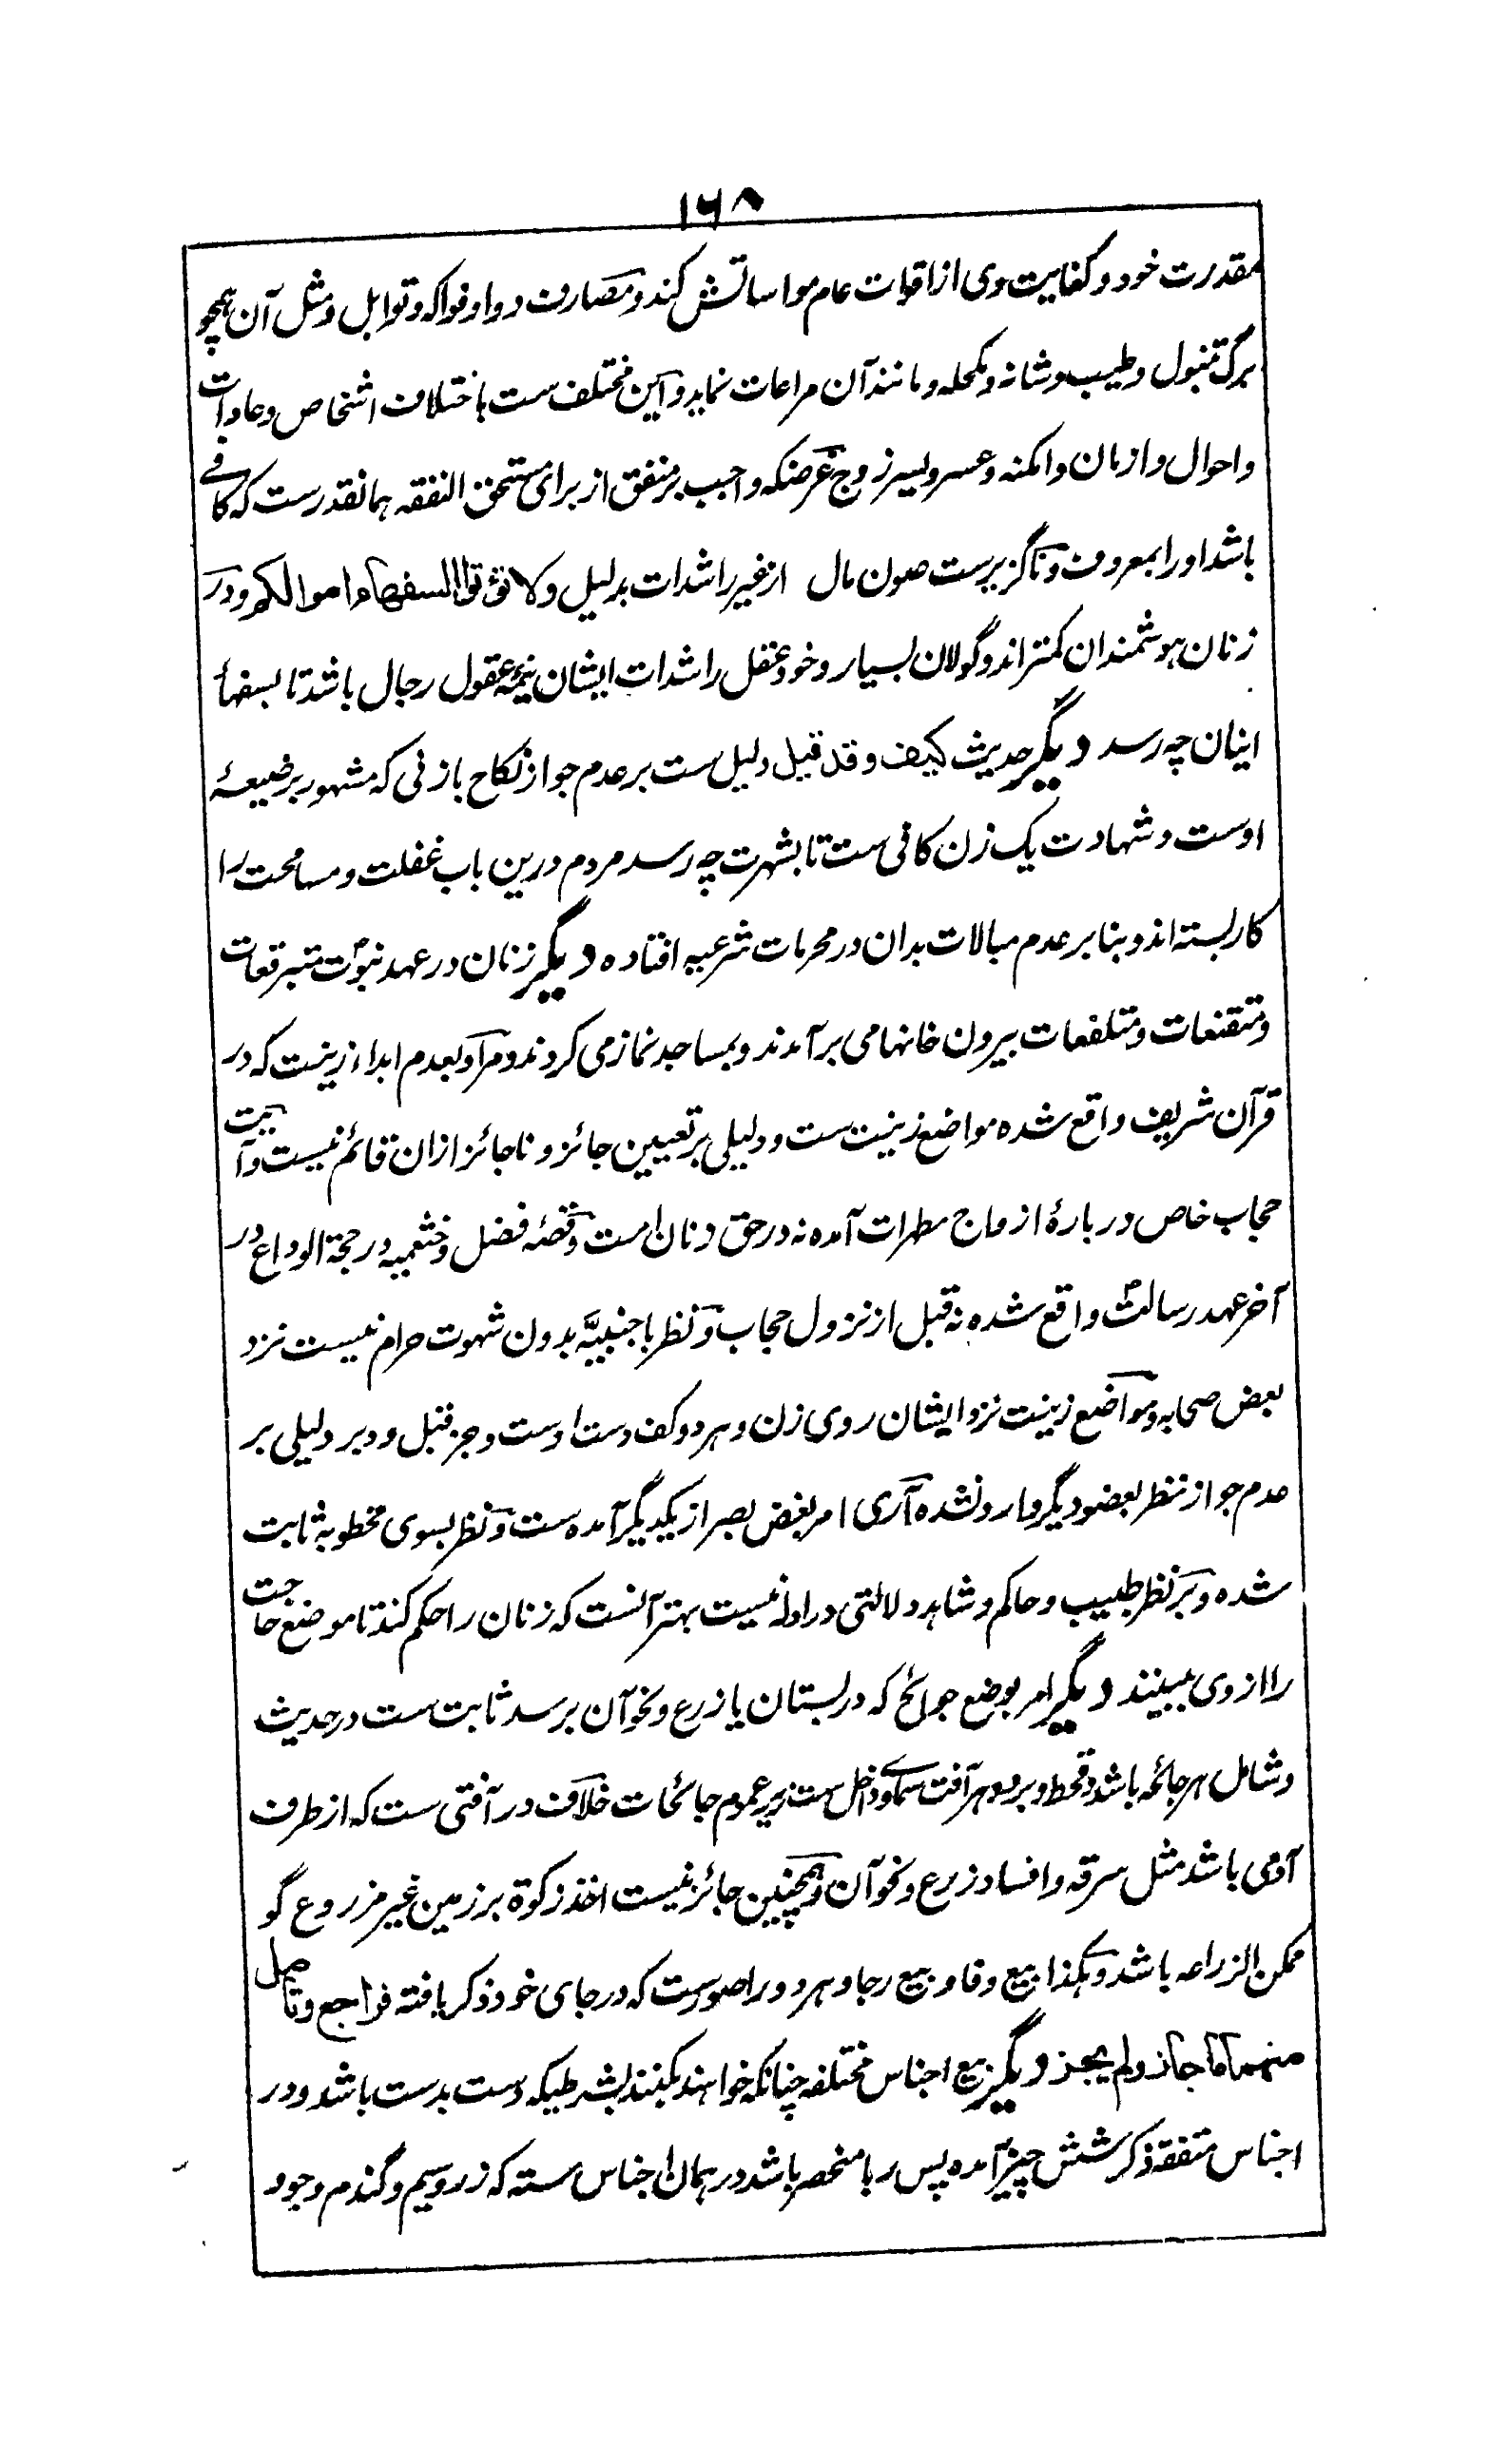 ۱۶۸
مقدرت خود و کفایت وی از اقوات عام مواساتش کند و مصارف دوا و فواکه و توابل و مثل آن همچو
برگ تنبول و طیب و شانه و مکحله و مانند آن مراعات نماید و این مختلف ست باختلاف اشخاص و عادات
و احوال و ازمان و امکنه و عسر و یسر زوج غرضکه واجب بر منفق از برای مستحق النفقه همانقدرست که کافے
باشد او را بمعروف و ناگزیرست صون مال از غیر راشدات بدلیل ولا تؤتوا السفهاء اموالکم و در
زنان هوشمندان کمتر اند و گولان بسیار و خود عقل راشدات ایشان نیمۂ عقول رجال باشد تا بسفهاء
اینان چه رسد دیگر حدیث کیف و قد قیل دلیل ست بر عدم جواز نکاح بازنی که مشهور برضیعۂ
اوست و شهادت یک زن کافی ست تا بشهرت چه رسد مردم درین باب غفلت و مسامحت را
کار بسته اند و بنابر عدم مبالات بدان در محرمات شرعیه افتاده دیگر زنان در عهد نبوت متبرقعات
و متقنعات و متلفعات بیرون خانها می برآمدند و بمساجد نماز می کردند و مراد بعدم ابداء زینت که در
قرآن شریف واقع شده مواضع زینت ست و دلیلی بر تعیین جائز و ناجائز ازان قائم نیست و آیت
حجاب خاص در بارۂ ازواج مطهرات آمده نه در حق زنان امت و قصۂ فضل و خثعمیه در حجة الوداع در
آخر عهد رسالت واقع شده نه قبل از نزول حجاب و نظر باجنبیّه بدون شهوت حرام نیست نزد
بعض صحابه و مواضع زینت نزد ایشان روی زن و هر دو کف دست اوست و جز قبل و دبر دلیلی بر
عدم جواز نظر بعضو دیگر وارد نشده آری امر بغض بصر از یکدیگر آمده ست و نظر بسوی مخطوبه ثابت
شده و بر نظر طبیب و حاکم و شاهد دلالتی در ادله نیست بهتر آنست که زنان را حکم کند تا موضع حاجت
را از وی ببینند دیگر امر بوضع جوائح که در بستان یا زرع و نحو آن برسد ثابت ست در حدیث
و شامل هر جائحه باشد و قحط و برد و هر آفت سماوے داخل ست زیر عموم جائحات خلاف در آفتی ست که از طرف
آدمی باشد مثل سرقه و افساد زرع و نحو آن و همچنین جائز نیست اخذ زکوة بر زمین غیر مزروع گو
ممکن الزراعه باشد و هکذا بیع وفا و بیع رجا و هر دو را صورست که در جای خود ذکر یافته فراجع و تأمل
منهما ما جاز و لم یجز دیگر بیع اجناس مختلفه چنانکه خواهند بکنند بشرطیکه دست بدست باشد و در
اجناس متفقه ذکر شش چیز آمده پس ربا منحصر باشد در همان اجناس سته که زر و سیم و گندم و جو و